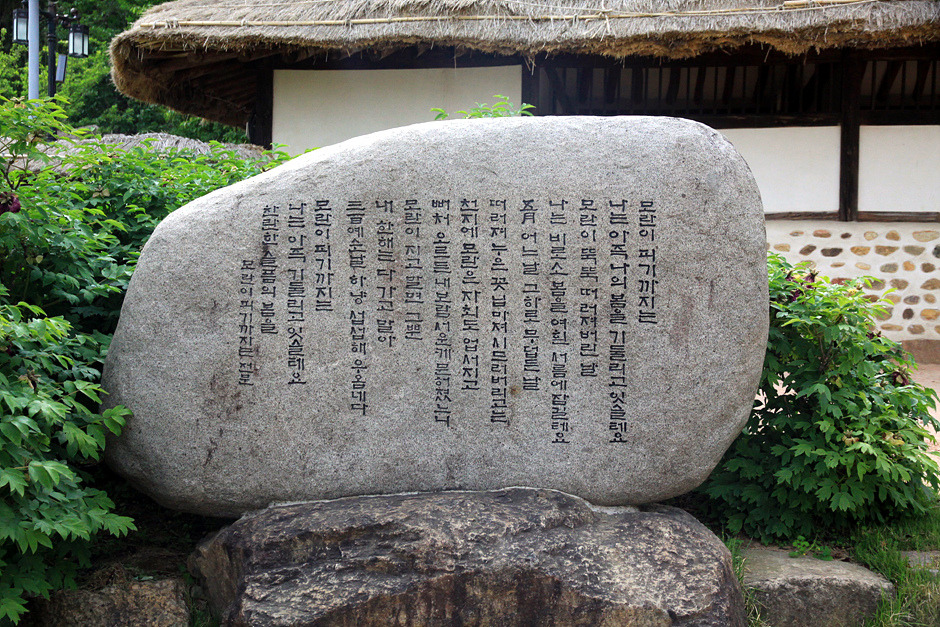 모란이 피기까지는
나는 아즉 나의 봄을 기둘리고 잇슬테요
모란이 뚝뚝 떠러져버린 날
나는 비로소 봄을 여흰 서름에 잠길테요
五月 어느날 그하로 무덥든 날
떠러져누은 꽃닙마저 시드러버리고는
천지에 모란은 자최도 업서지고
뻐처 오르든 내보람 서운케 문허졌느니
모란이 지고말면 그뿐
내 한해는 다 가고 말아
三百예순날 하냥 섭섭해 우옵내다
모란이 피기까지는
나는 아즉 기둘리고 잇슬테요
찬란한 슬픔의 봄을
모란이 피기까지는 전문